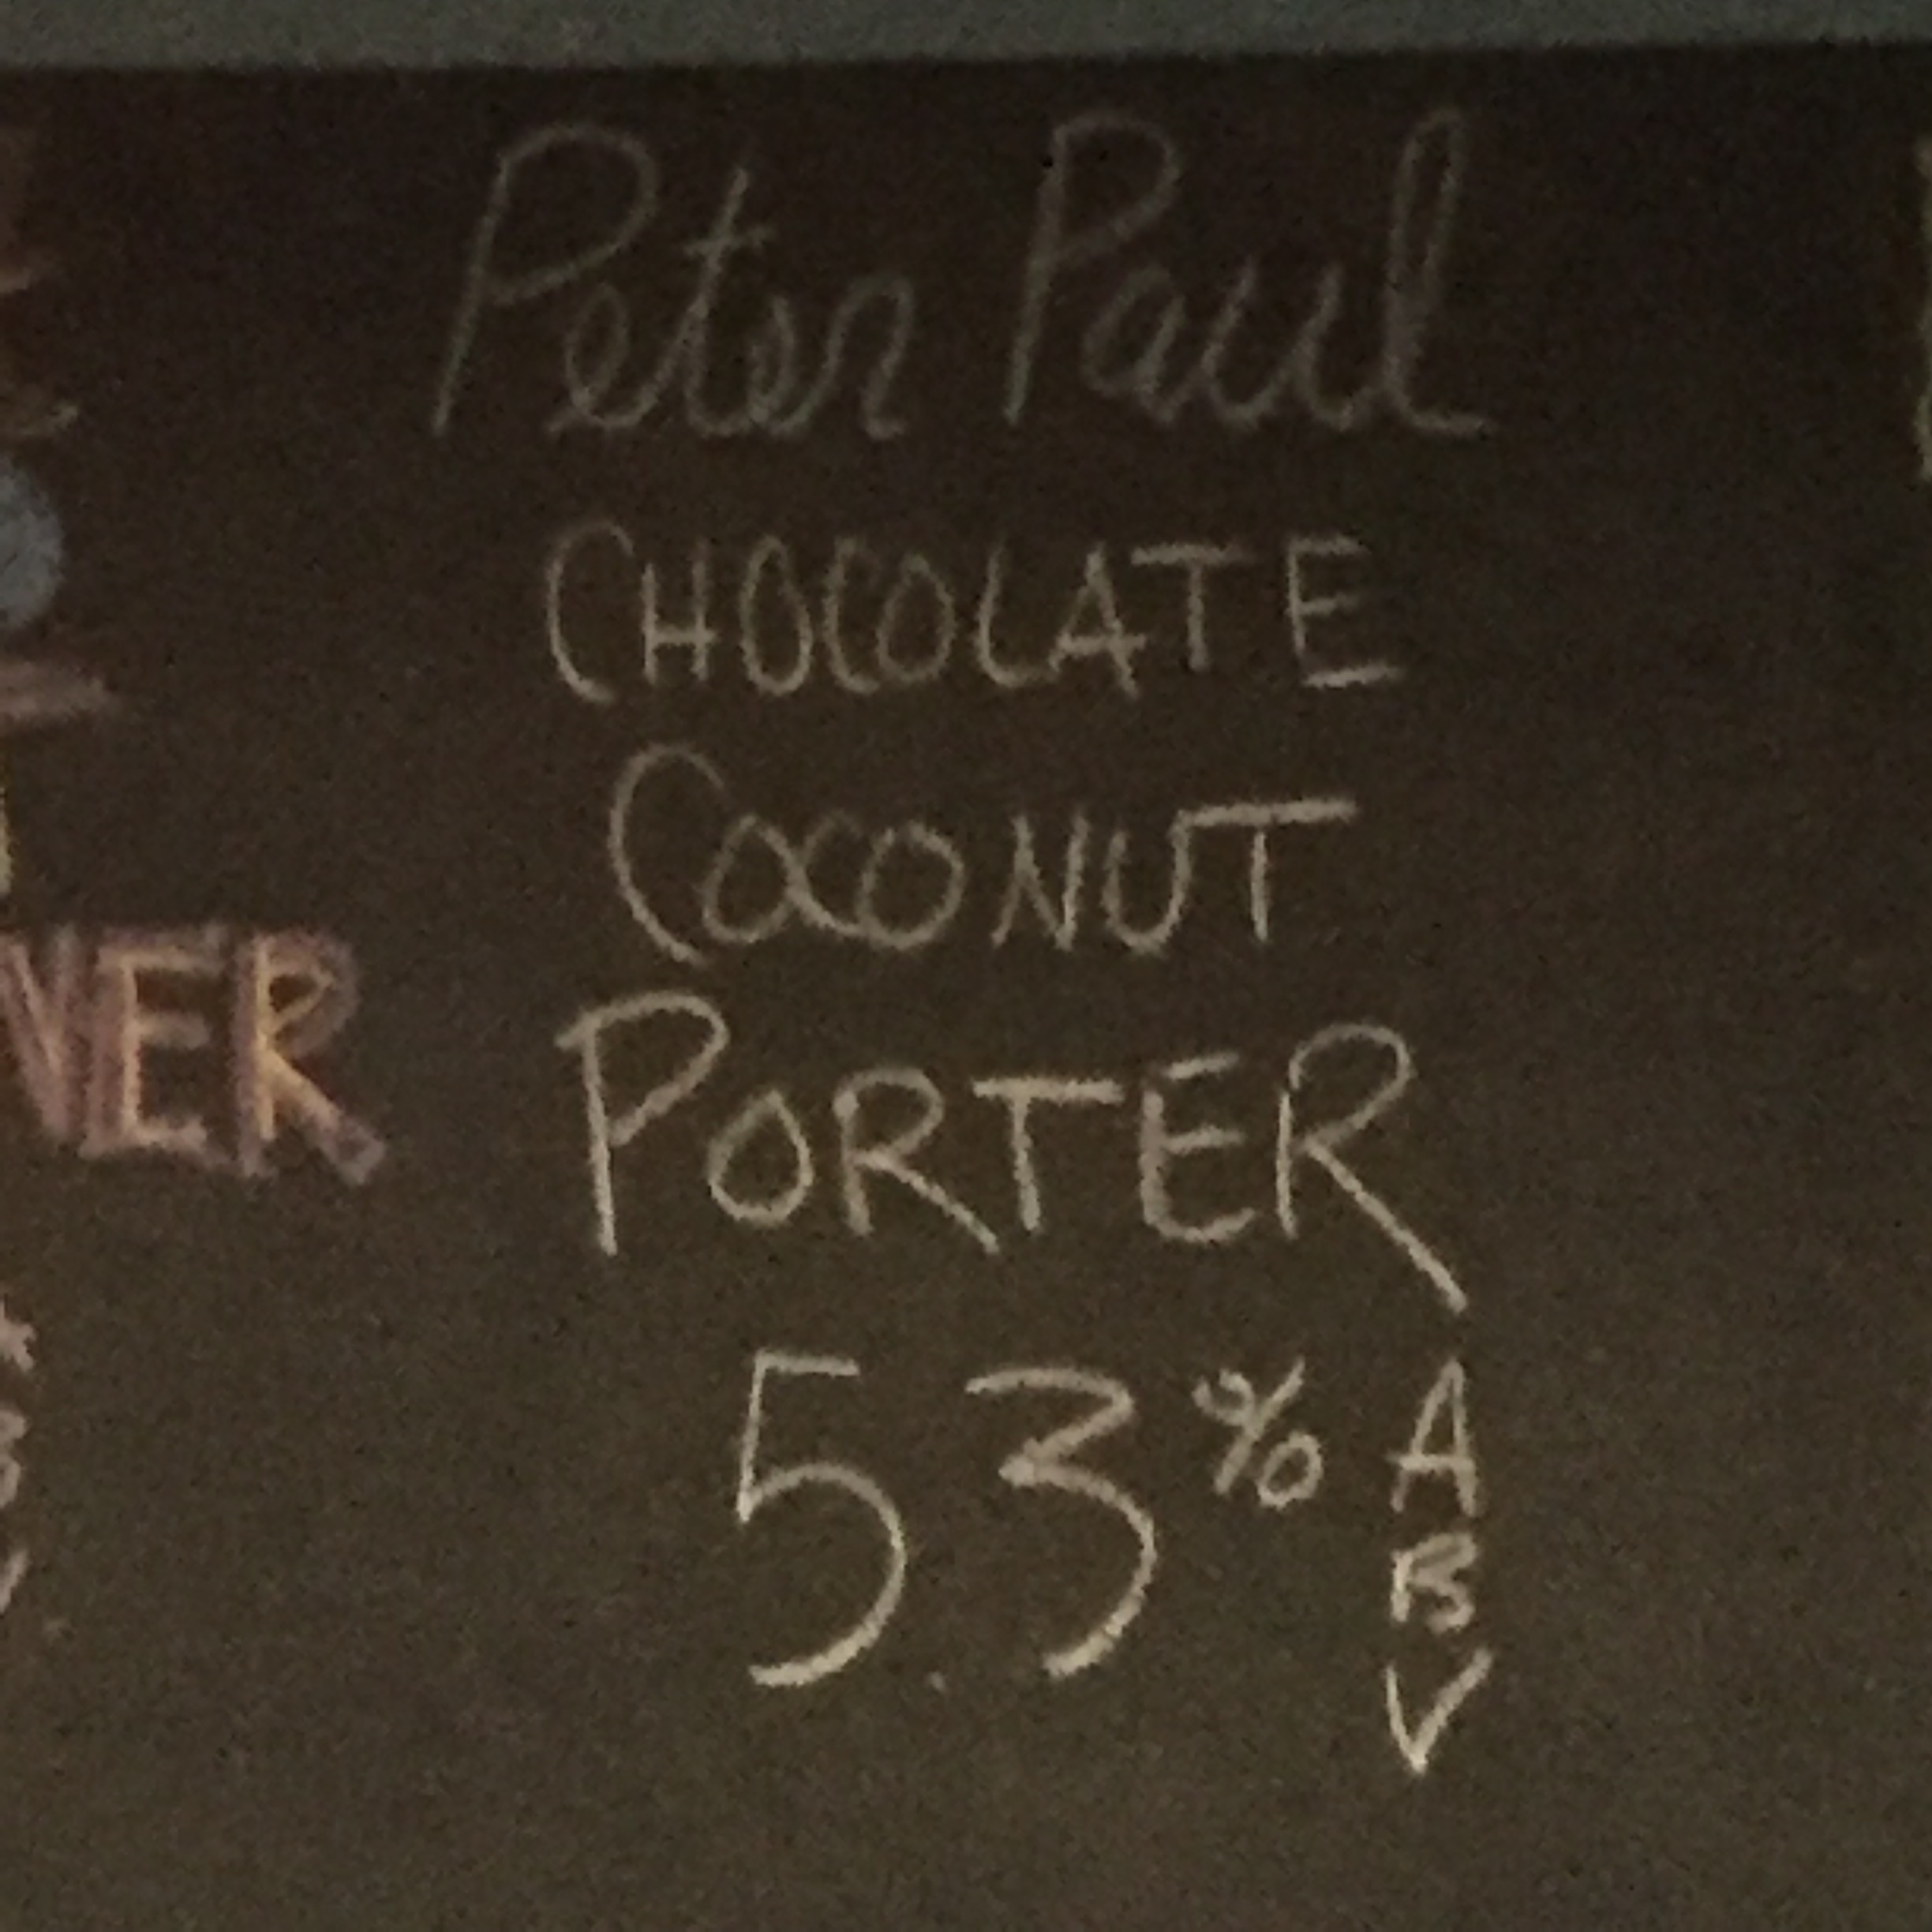 Peter Paul
CHOCOLATE
COCONUT
PORTER
5.3% ABV